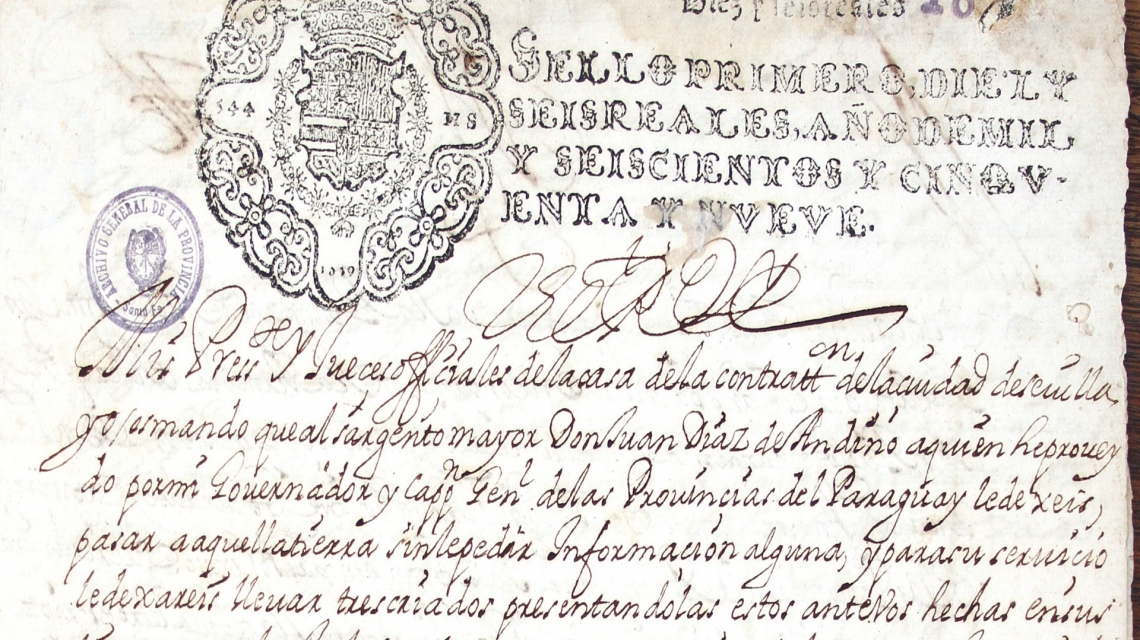 Diez y seis reales 16
SELLO PRIMERO, DIEZ Y
SEIS REALES, AÑO DE MIL
Y SEISCIENTOS Y CINQV-
ENTA Y NVEVE.
1659
ARCHIVO GENERAL DE LA PROVINCIA
Santa Fe
El Rey
Mis Pres y Jueces officiales dela casa dela contratt.on dela ciudad de sevilla,
yo os mando que al sargento mayor Don Juan Diaz de Andino a quien he provey
do por mi Governador y Capp.n Gen.l de las Provincias del Paraguay le dexeis,
pasar a aquella tierra sin le pedir Informacion alguna, y para su servicio
le dexareis llevar tres criados presentandolas estos ante Vos hechas en sus